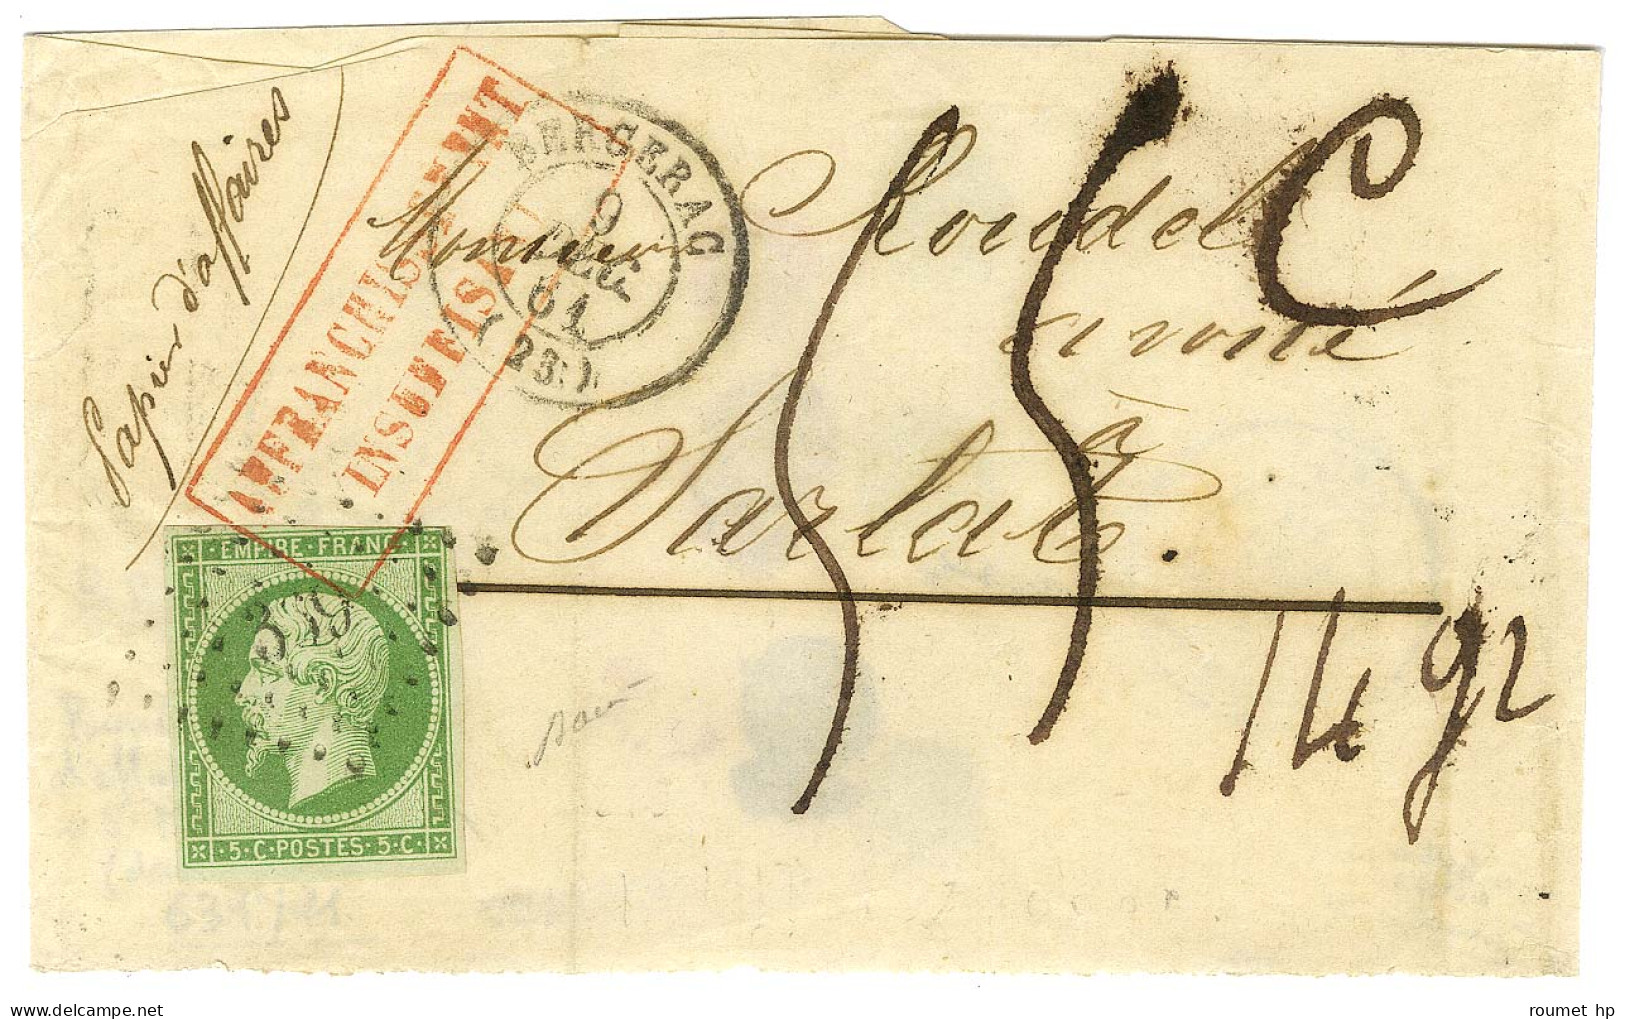 Papier d'affaires
AFFRANCHISSEMENT
INSUFFISANT
BERGERAC
9
DEC
61
(23)
Monsieur Roudel
avoué
à
Sarlat.
55 C
14 gr
EMPIRE·FRANC·
359
5·C·POSTES·5·C·
roumet hp